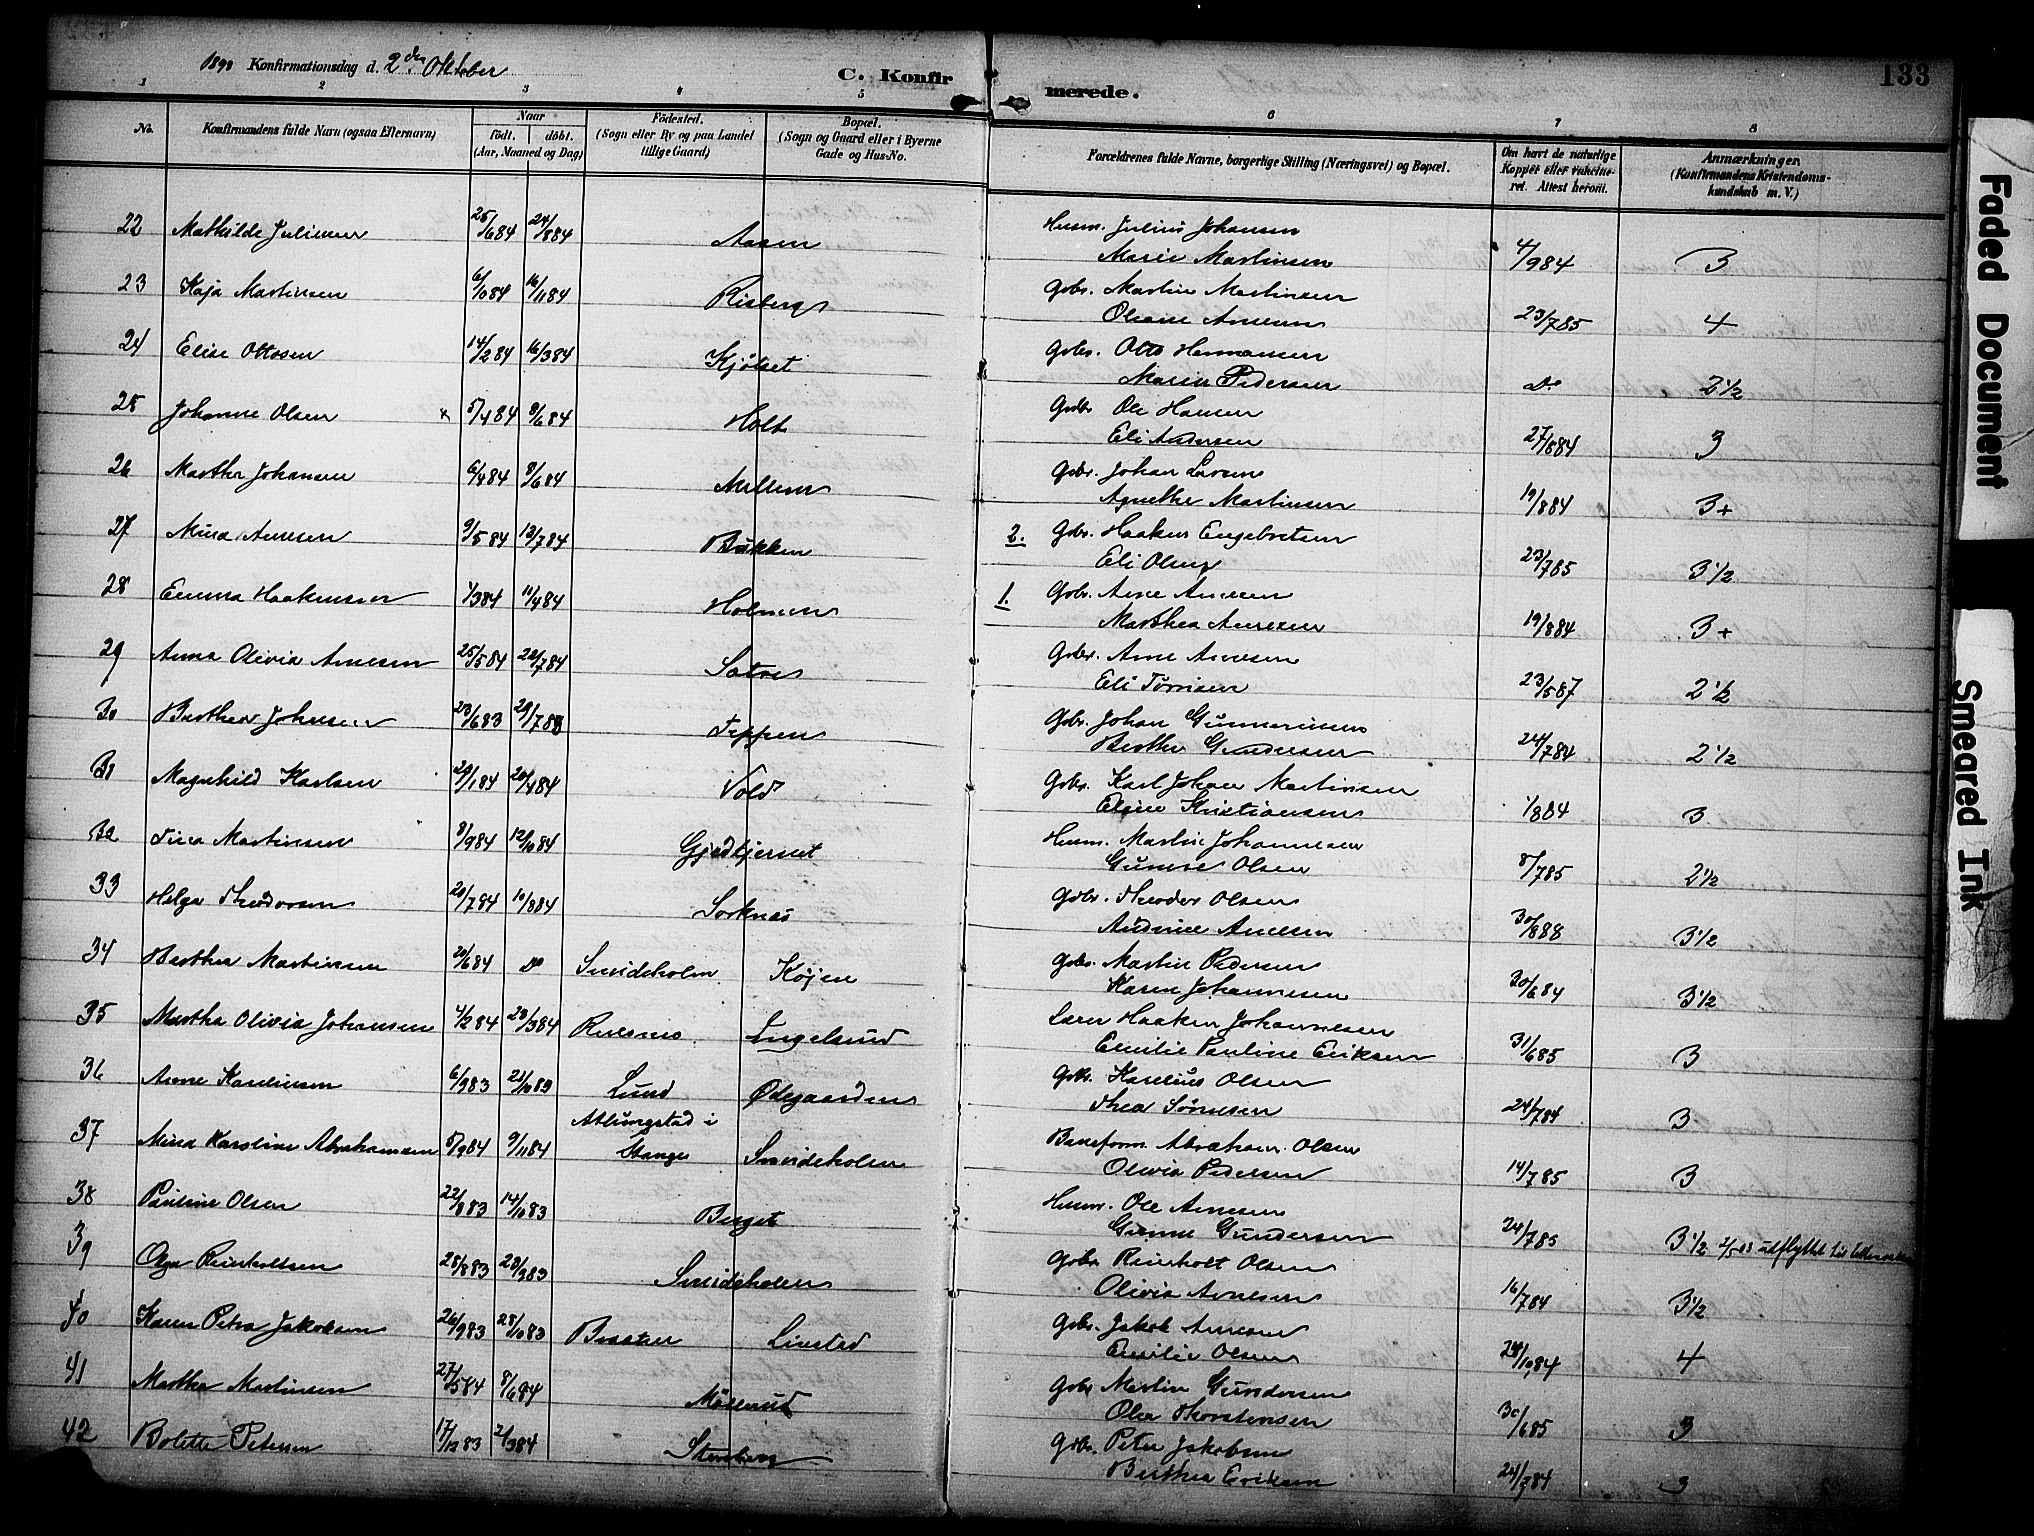 1898 Konfirmationsdag d. 2den Oktober
C. Konfirmerede.
133
1 2 3 4 5 6 7 8
No.
Konfirmandens fulde Navn (ogsaa Efternavn)
Naar
födt. döbt.
(Aar, Maaned og Dag)
Födested.
(Sogn eller By og paa Landet tillige Gaard)
Bopæl.
(Sogn og Gaard eller i Byerne Gade og Hus-No.
Forældrenes fulde Navne, borgerlige Stilling (Næringsvei) og Bopæl.
Om havt de naturlige Kopper eller vakcineret. Attest herom.
Anmærkninger.
(Konfirmandens Kristendomskundskab m. V.)
22 Mathilde Juliussen 25/6 84 24/8 84 Aasen Husm. Julius Johansen
Marie Martinsen 4/9 84 3
23 Kaja Martinsen 6/10 84 16/11 84 Risberg Gbr. Martin Martinsen
Oleane Arnesen 23/7 85 4
24 Elise Ottosen 14/2 84 16/3 84 Kjølset Gbr. Otto Hermansen
Marie Pedersen Do 2 1/2
25 Johanne Olsen x 5/4 84 8/6 84 Holt Gbr. Ole Hansen
Eli Andersen 27/8 84 3
26 Marthea Johansen 6/4 84 8/6 84 Mellem Gbr. Johan Larsen
Agnethe Martinsen 19/8 84 3+
27 Mina Arnesen 9/5 84 13/7 84 Bakken 2. Gbr. Haaken Engebretsen
Eli Olsen 23/7 85 3 1/2
28 Emma Haakensen 1/3 84 11/4 84 Holmen 1. Gbr. Arne Arnesen
Marthea Arnesen 19/8 84 3+
29 Anna Olivia Arnesen 25/5 84 22/7 84 Sætre Gbr. Arne Arnesen
Eli Torrisen 23/5 87 2 1/2
30 Berthea Johansen 23/6 83 29/7 83 Teppen Gbr. Johan Gunnerusen
Berthe Gundersen 24/7 84 2 1/2
31 Magnhild Karlsen 29/1 84 20/4 84 Vold Gbr. Karl Johan Martinsen
Eline Kristiansen 1/8 84 3
32 Tina Martinsen 8/9 84 12/10 84 Gjedtjernet Husm. Martin Johannesen
Gunnie Olsen 8/7 85 2 1/2
33 Helga Theodorsen 20/7 84 10/8 84 Sorknæs Gbr. Theodor Olsen
Andrine Arnesen 30/8 88 3 1/2
34 Berthea Martinsen 20/6 84 Do Smideholm Køjen Gbr. Martin Pedersen
Karen Johannesen 30/6 84 3 1/2
35 Martha Olivia Johansen 4/2 84 23/3 84 Revsnes Engelsrud Lærer Haaken Johannesen
Emilie Pauline Eriksen 31/6 85 3
36 Anne Karelinsen 6/9 83 21/10 83 Lund Ødegaarden Gbr. Karelius Olsen
Thea Sørnesen 24/7 84 3
37 Mina Karoline Abrahamsen 5/9 84 9/11 84 Atlungstad i
Stange Smideholen Baneform. Abraham Olsen
Olivia Pedersen 14/7 85 3
38 Pauline Olsen 22/8 83 14/10 83 Berget Husm. Ole Arnesen
Grenne Gundersen 24/7 85 3 1/2
39 Olga Reinholtsen 25/8 83 23/9 83 Smideholen Gbr. Reinholt Olsen
Olivia Arnesen 16/7 84 3 1/2
40 Karen Petra Jakobsen 26/9 83 28/10 83 Braaten Linstad Gbr. Jakob Arnesen
Emilie Olsen 28/10 84 4
41 Marthea Martinsen 27/5 84 8/6 84 Møllerud Gbr. Martin Gundersen
Olea Thorstensen 30/6 85 3
42 Bolette Petersen 17/12 83 2/3 84 Stenberg Gbr. Peter Jakobsen
Berthea Eriksen 24/7 84 3
Faded Document
Smeared Ink